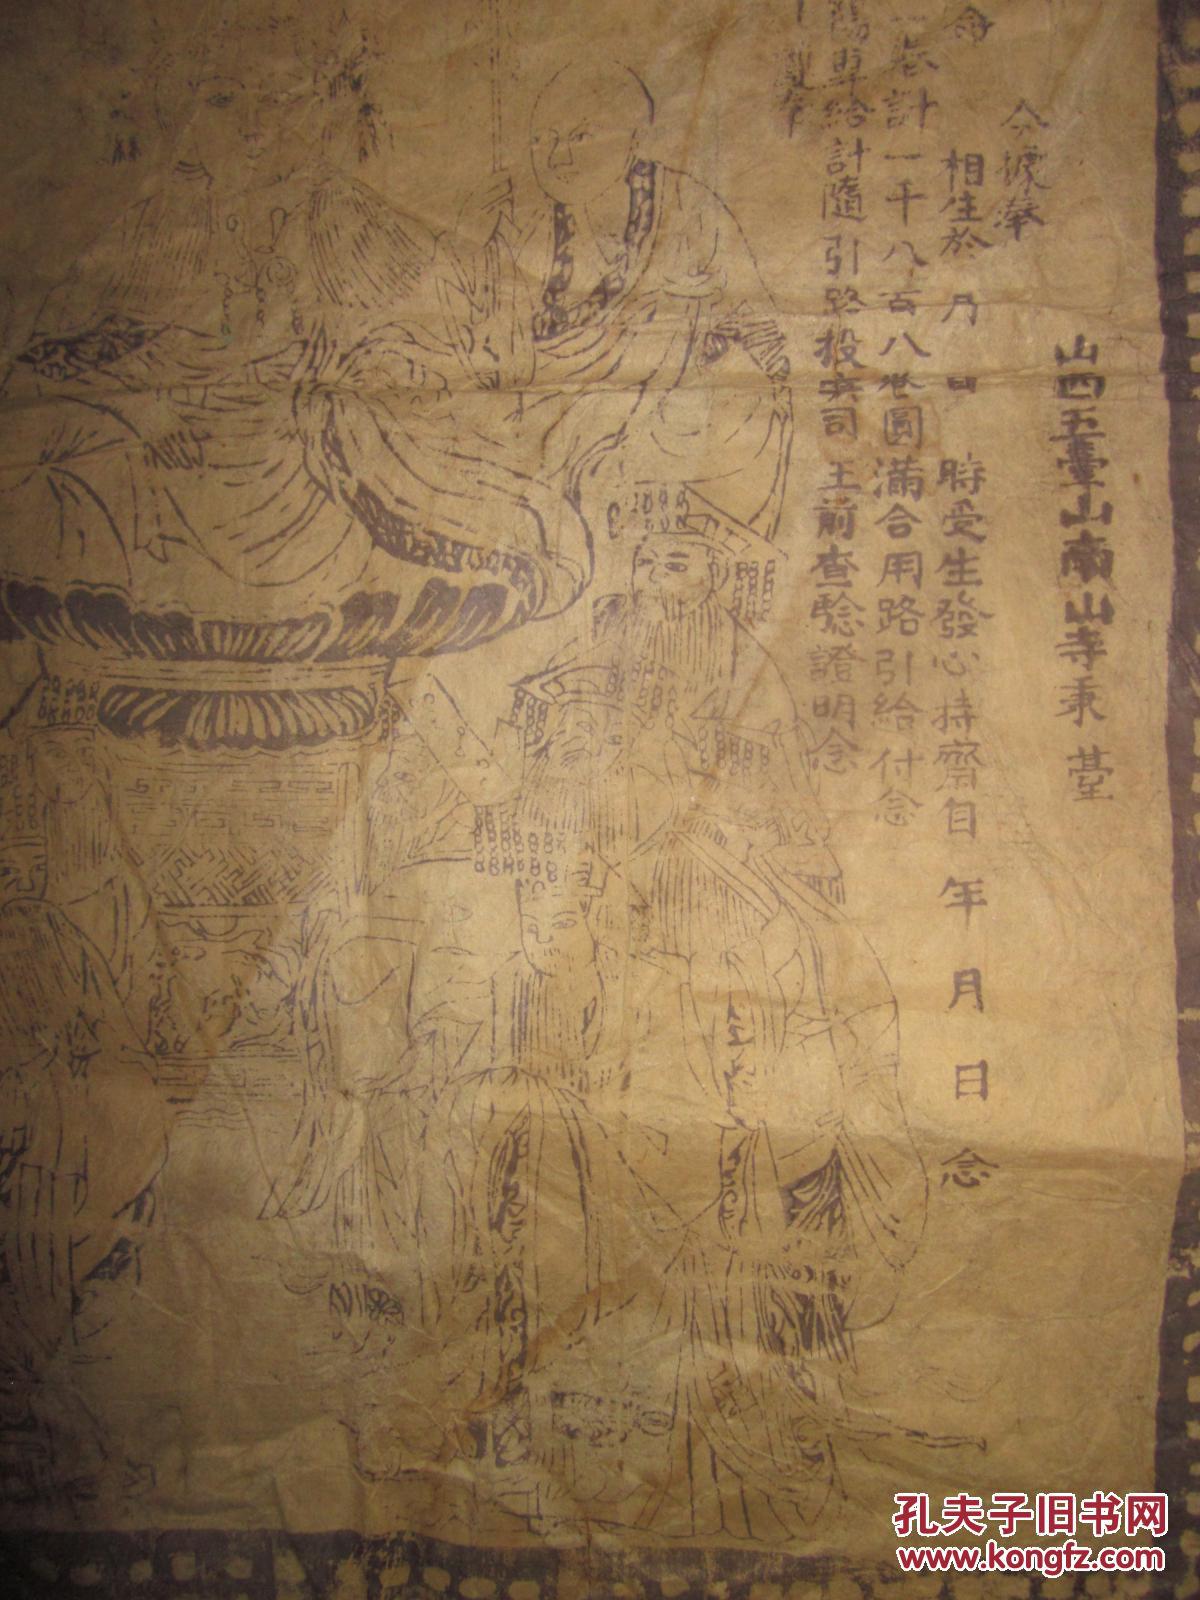 山西五臺山南山寺秉 墓
今據奉
相生於 月 日 時受生發心持齋自 年 月 日 念
計一千八百八卷圓滿合用路引給付念
陽專給計隨引路投冥司王前查驗證明念
孔夫子旧书网
www.kongfz.com